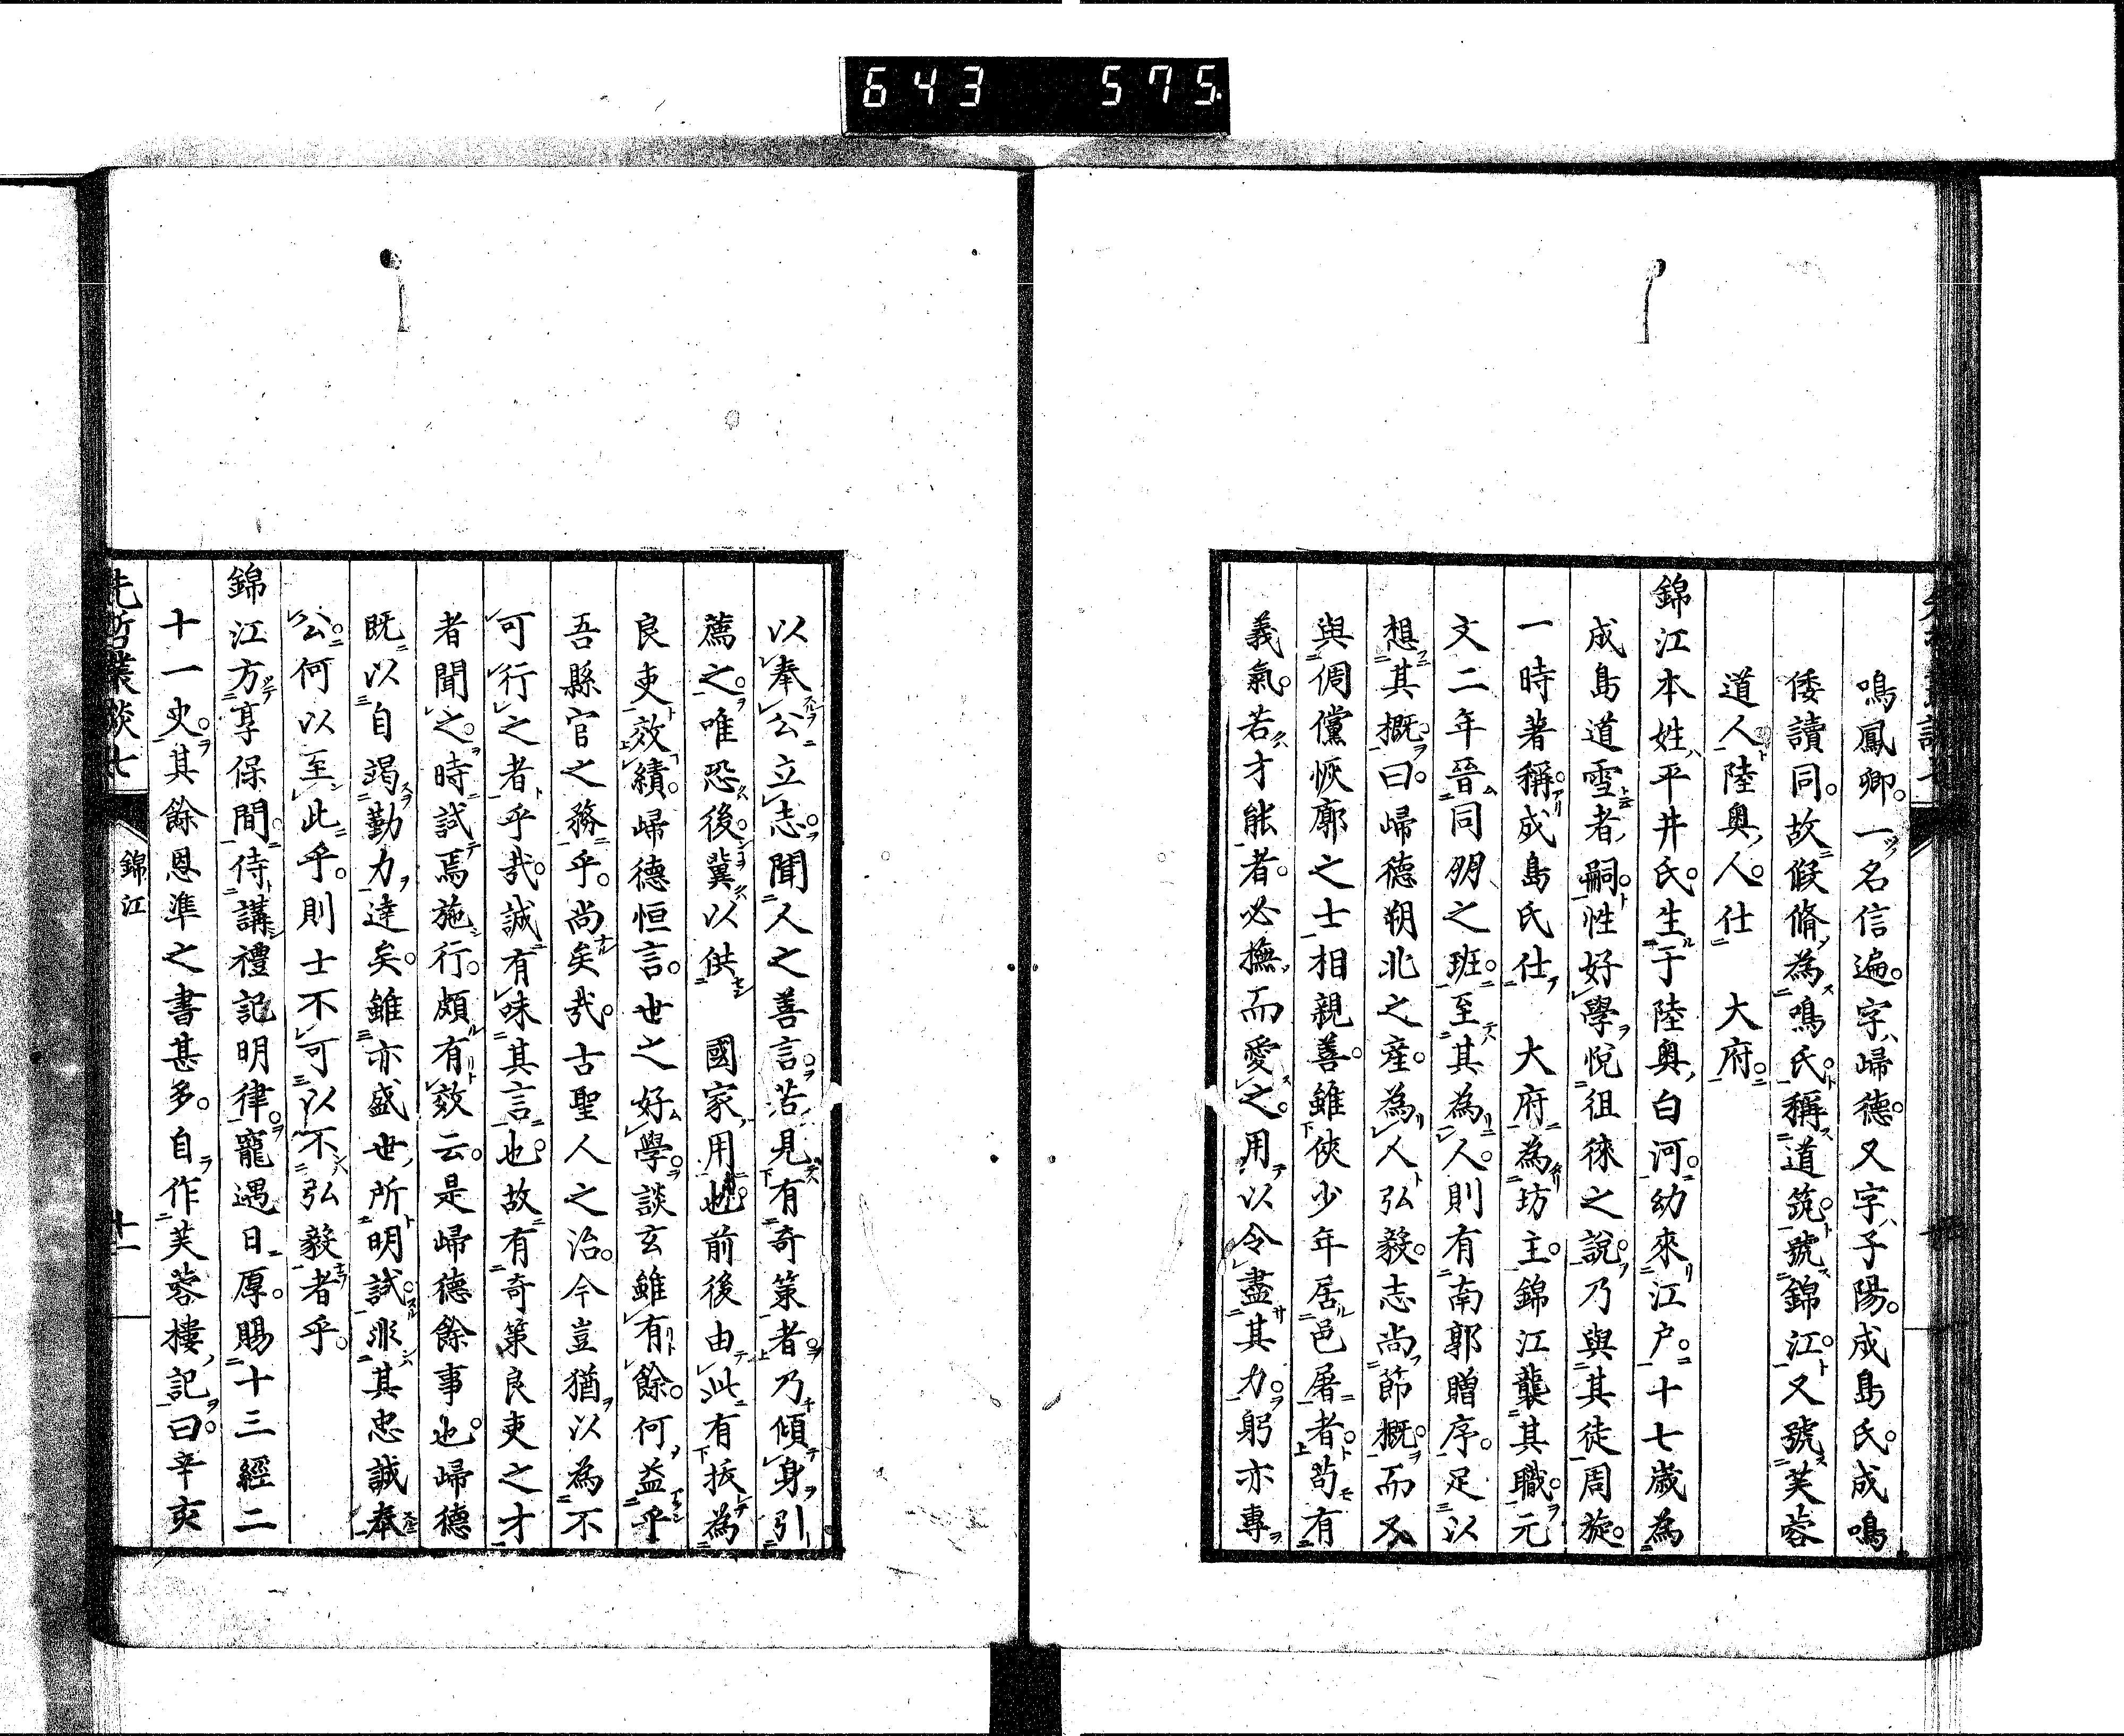 643 575
鳴鳳卿。一名信遍。字歸德又字子陽。成島氏。成鳴
倭讀同。故假脩為鳴氏。稱道筑。號錦江。又號芙蓉
道人。陸奧人。仕 大府。
錦江本姓平井氏。生于陸奧白河。幼來江戶。十七歲為
成島道雪者嗣。性好學。悅徂徠之說。乃與其徒周旋。
一時著稱。成島氏仕 大府為坊主。錦江襲其職。元
文二年晉同朋之班。至其為人。則有南郭贈序。足以
想其概。曰。歸德朔北之產。為人弘毅。志尚節概。而又
與倜儻恢廓之士相親善。雖俠少年居邑屠者。苟有
義氣。若才能者。必撫而愛之。用以令盡其力。躬亦專
以奉公立志。聞人之善言。苦見有奇策者。乃傾身引
薦之。唯恐後。冀以供 國家用也。前後由此有拔為
良吏效績。歸德恒言。世之好學。談玄雖有餘。何益乎
吾縣官之務乎。尚矣哉。古聖人之治。今豈猶以為不
可行之者乎哉。誠有味其言也。故有奇策良吏之才
者聞之。時試焉施行。頗有效云。是歸德餘事也。歸德
既以自竭勤力達矣。雖亦盛世所明試。非其忠誠奉
公。何以至此乎。則士不可以不弘毅者乎。
錦江方享保間。侍講禮記明律。寵遇日厚。賜十三經二
十一史。其餘恩準之書甚多。自作芙蓉樓記。曰。辛亥
先哲叢談七 錦江 十一